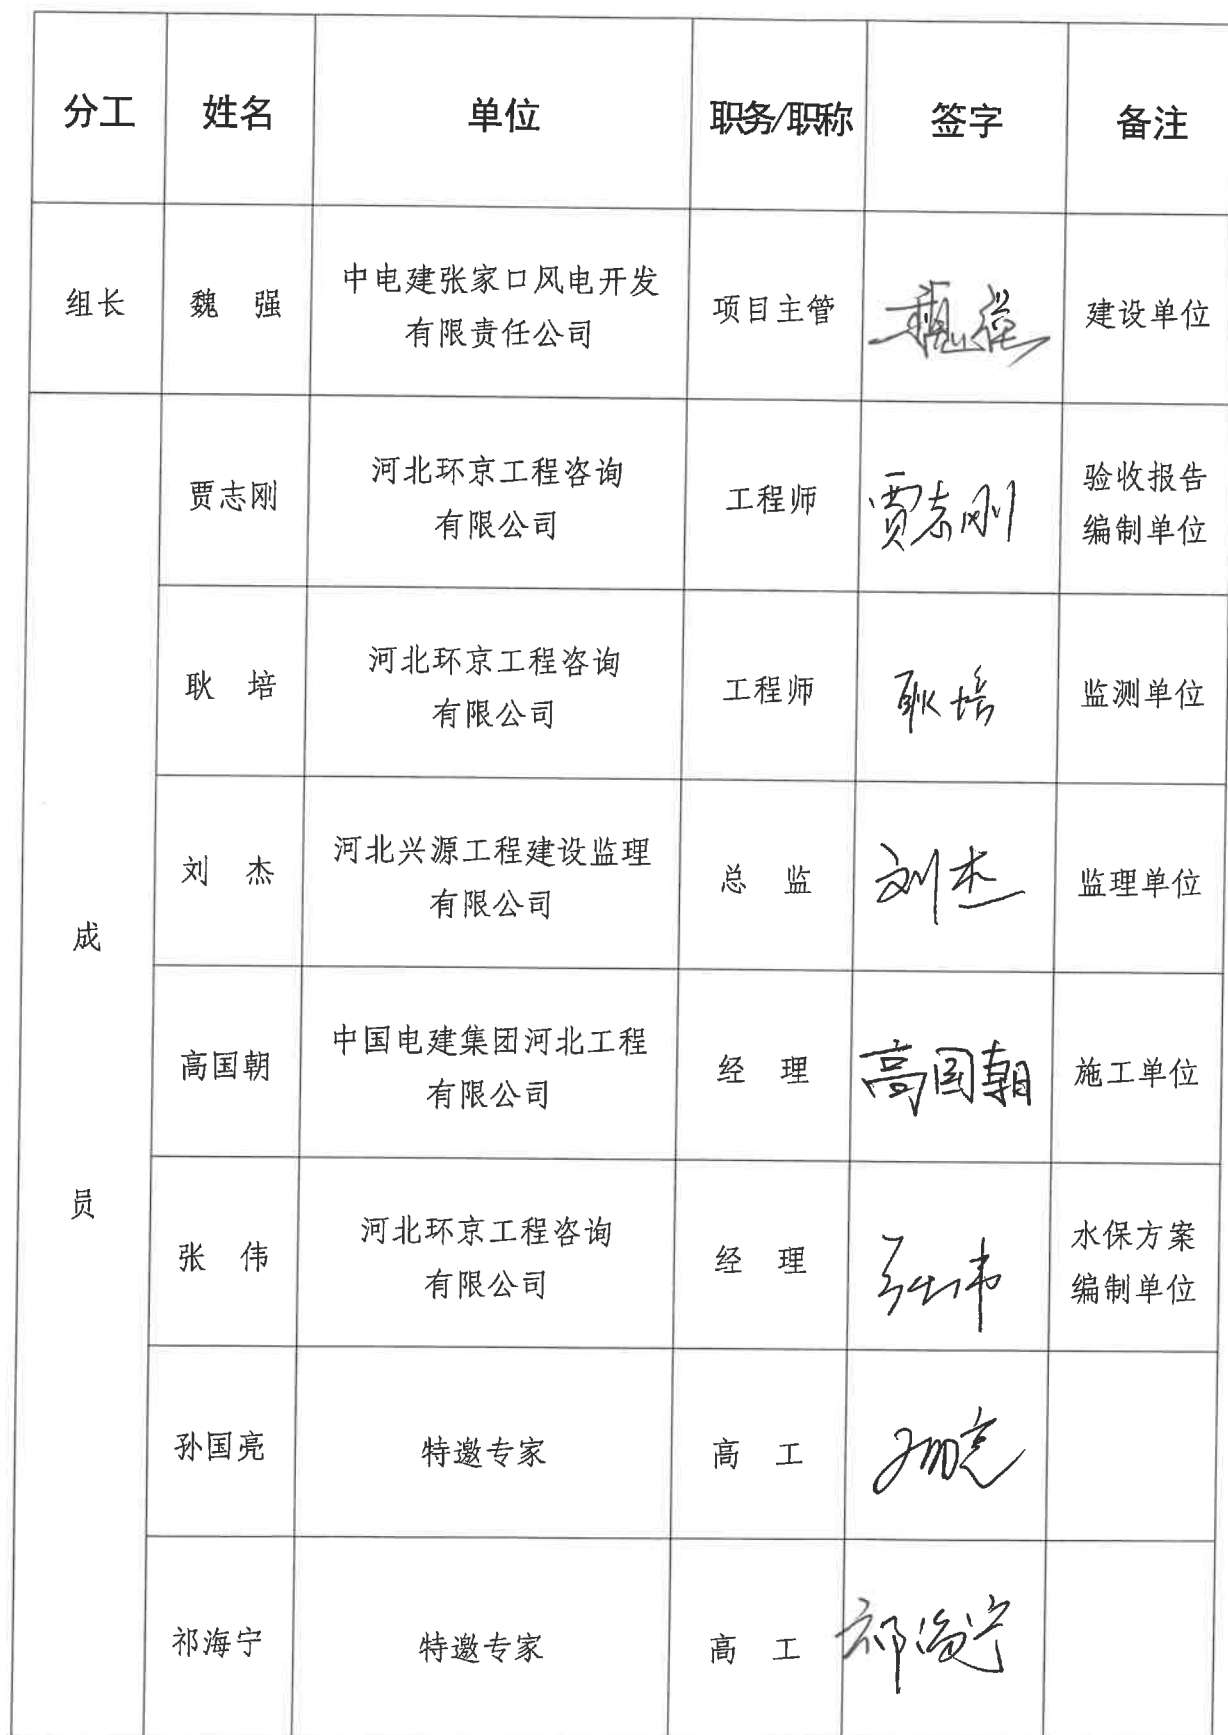 分工 姓名 单位 职务/职称 签字 备注
组长 魏 强 中电建张家口风电开发 有限责任公司 项目主管 魏强 建设单位
成员
贾志刚 河北环京工程咨询 有限公司 工程师 贾志刚 验收报告 编制单位
耿 培 河北环京工程咨询 有限公司 工程师 耿培 监测单位
刘 杰 河北兴源工程建设监理 有限公司 总 监 刘杰 监理单位
高国朝 中国电建集团河北工程 有限公司 经 理 高国朝 施工单位
张 伟 河北环京工程咨询 有限公司 经 理 张伟 水保方案 编制单位
孙国亮 特邀专家 高 工 孙国亮
祁海宁 特邀专家 高 工 祁海宁